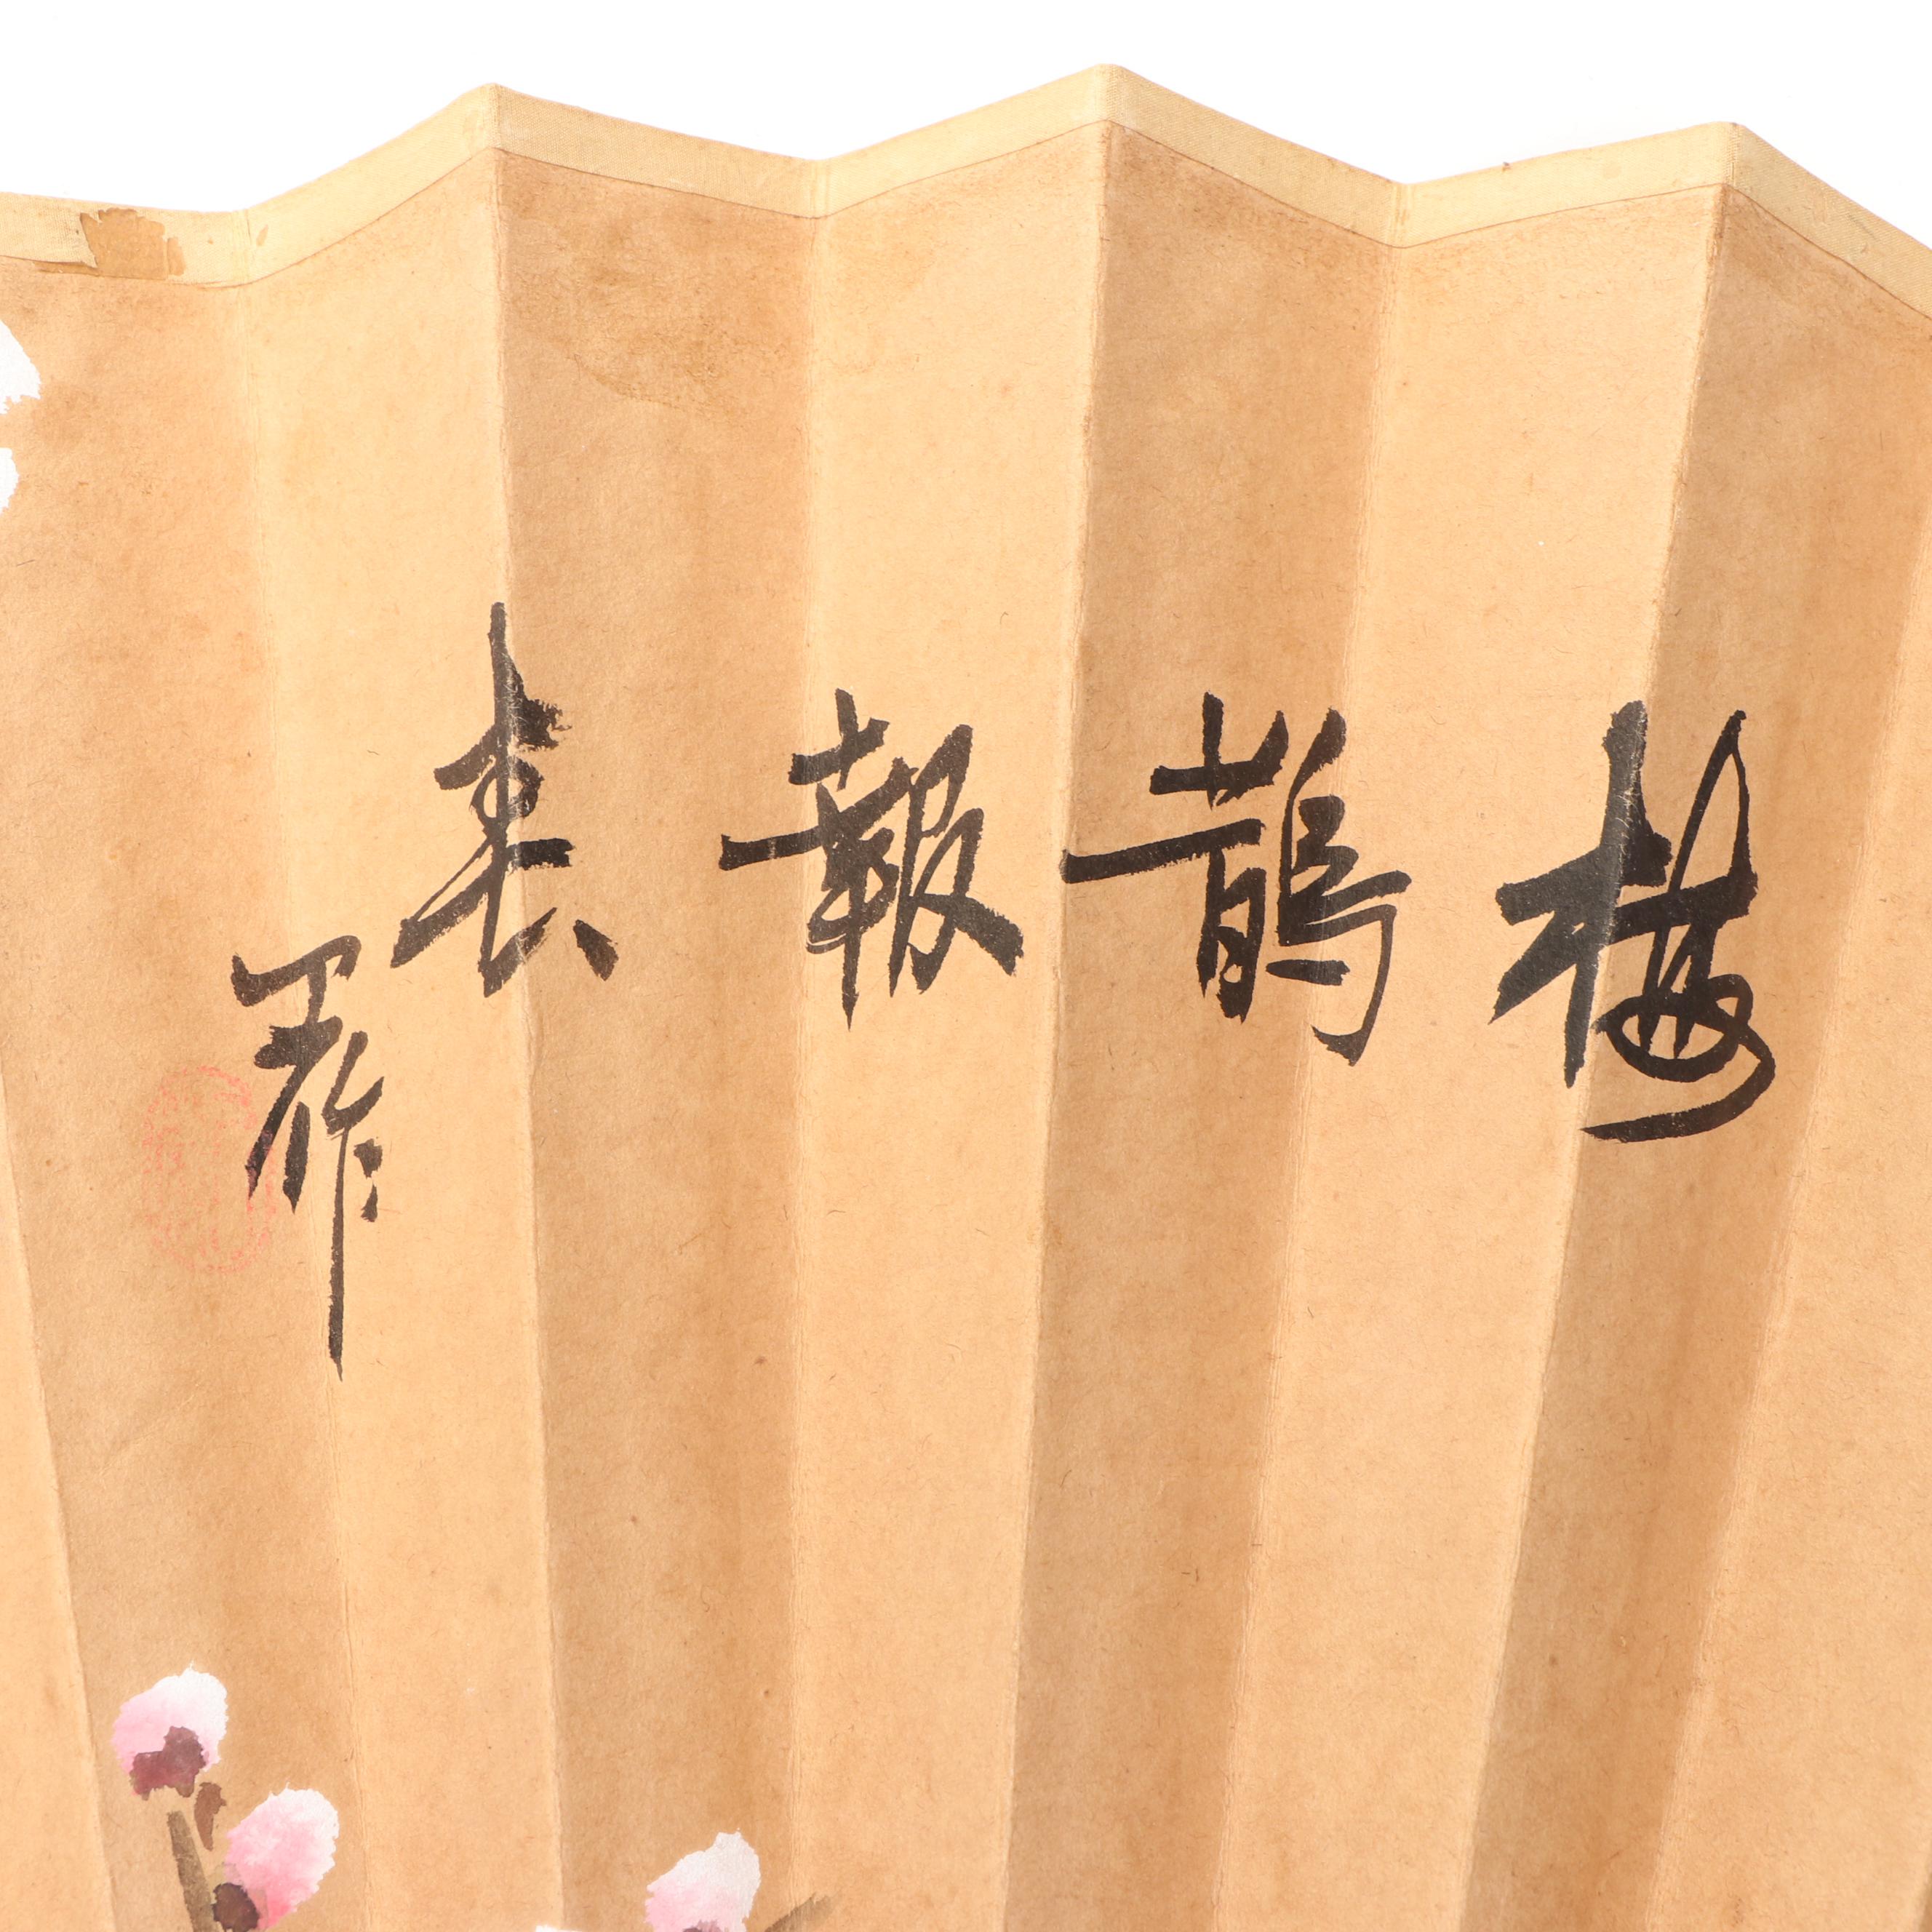 梅鵲報春
作